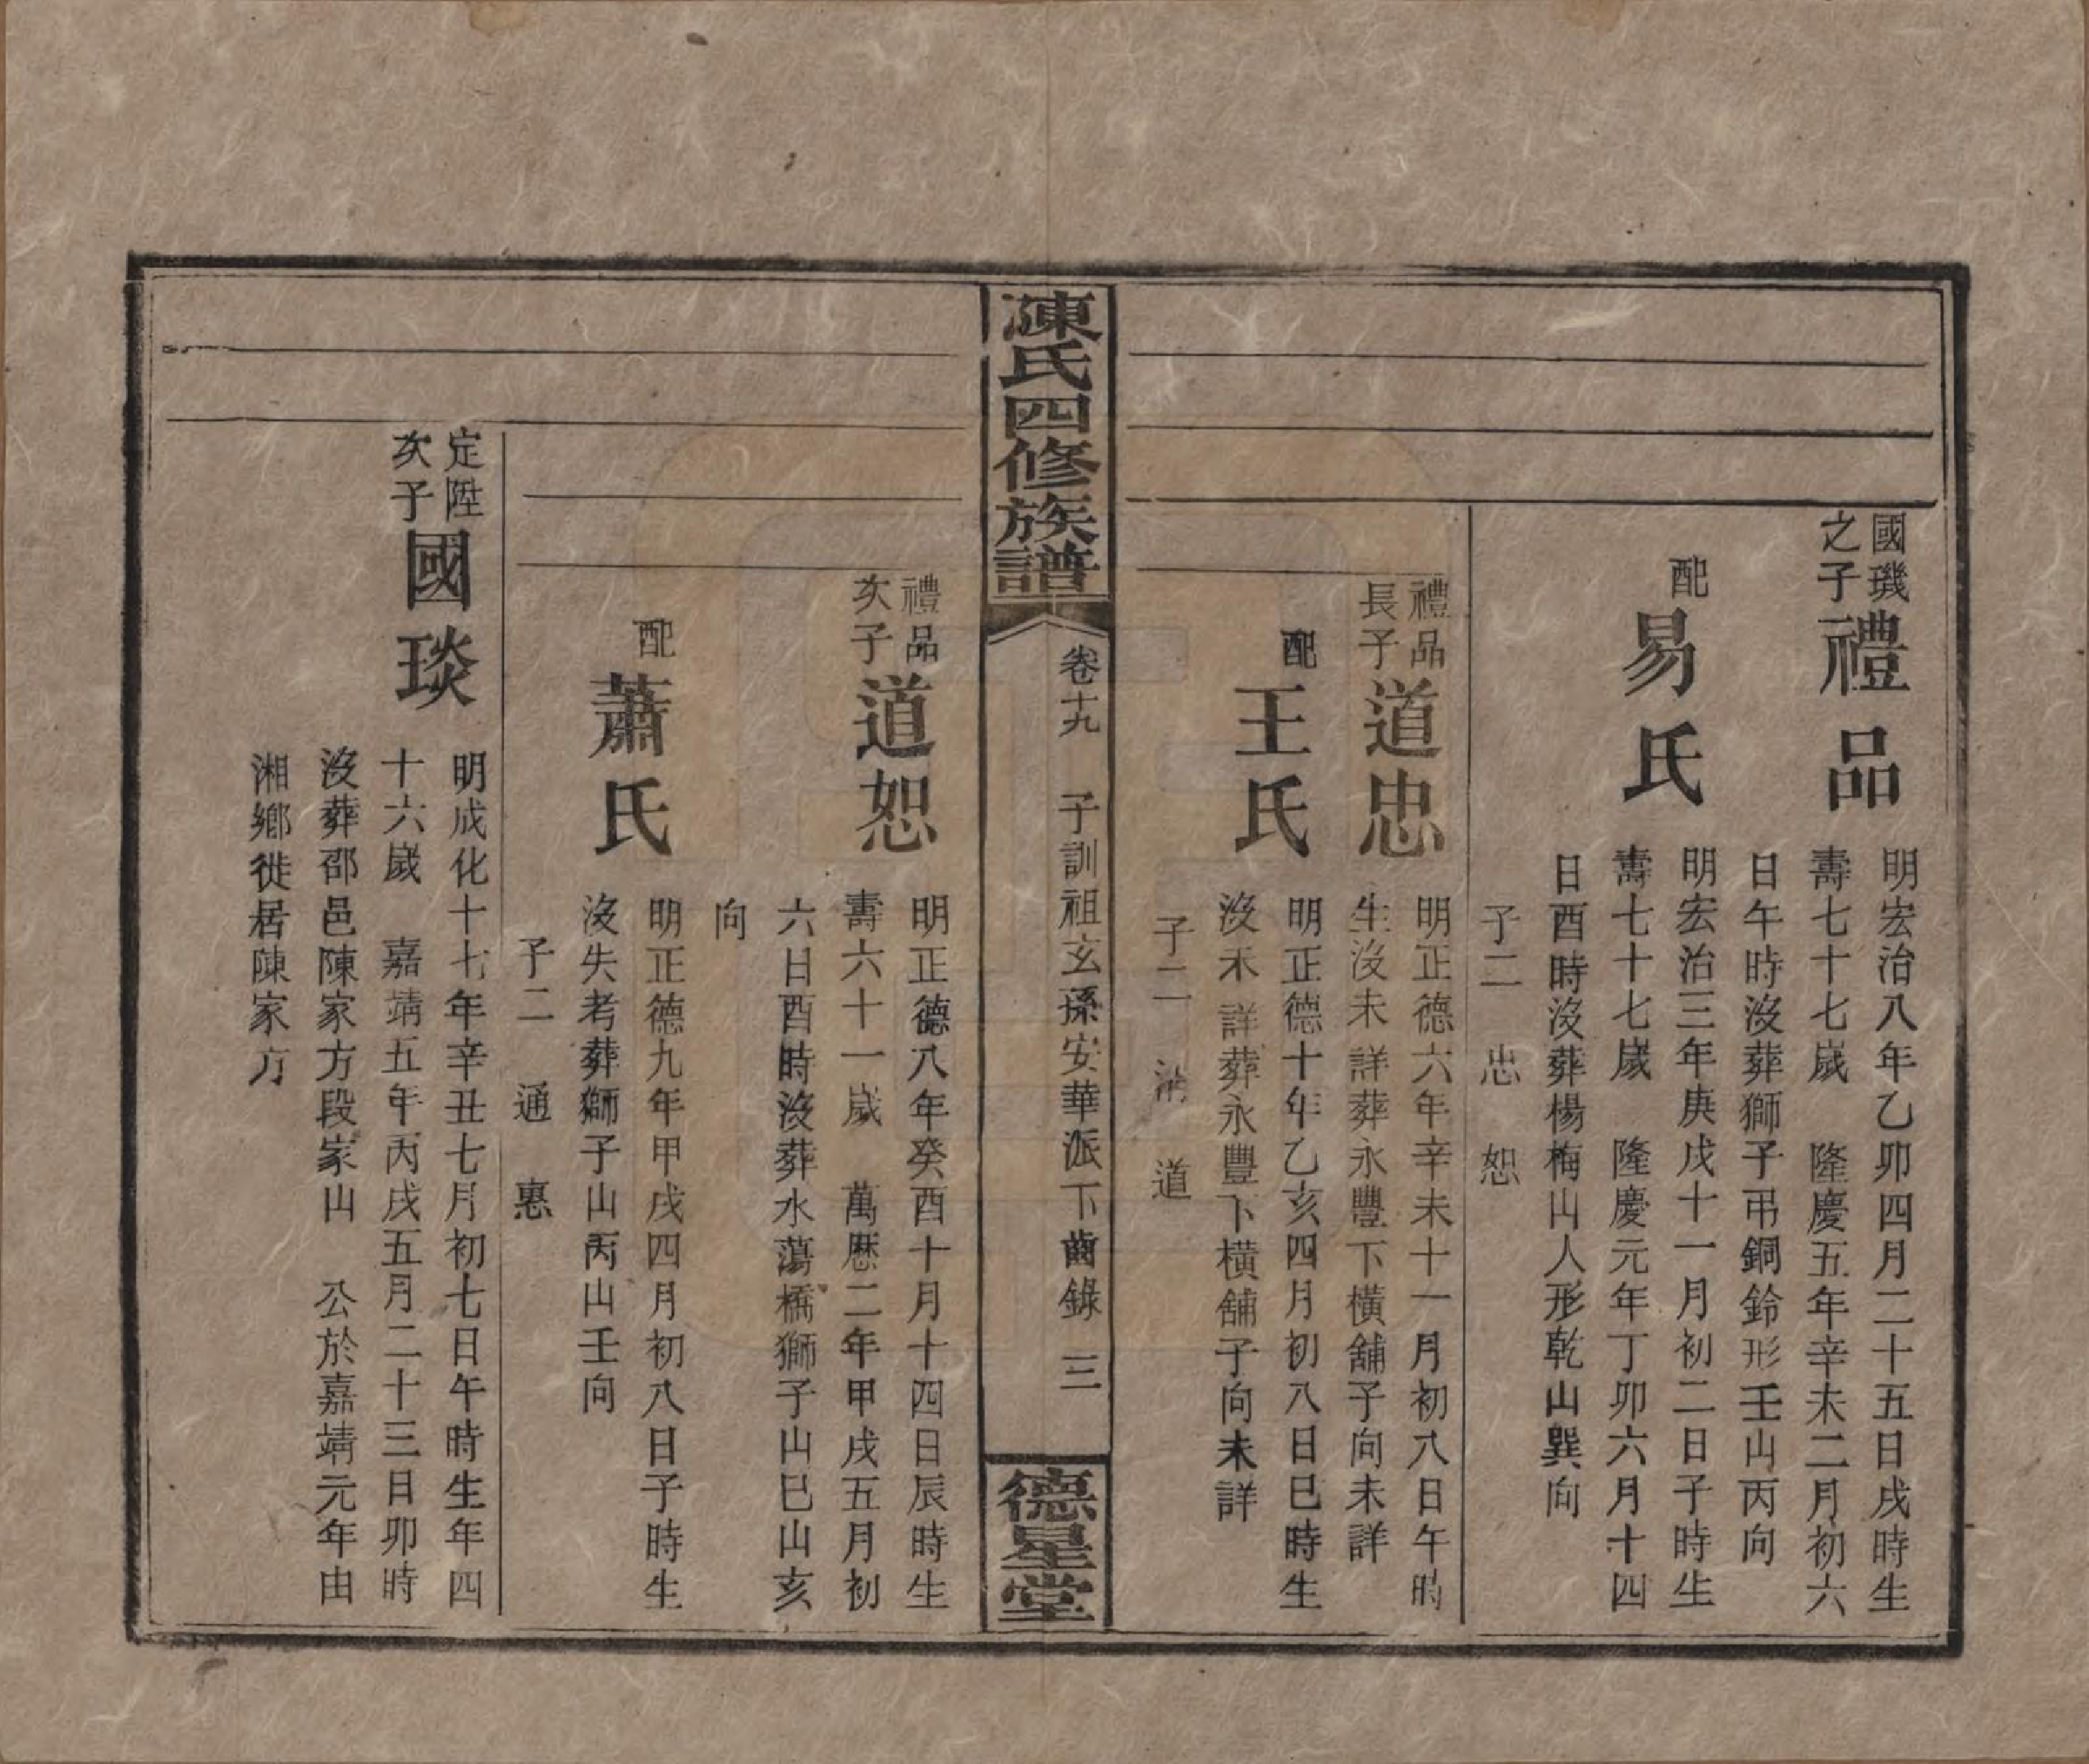 國璣
之子
禮品
明宏治八年乙卯四月二十五日戌時生
壽七十七嵗　隆慶五年辛未二月初六
日午時沒葬獅子弔銅鈴形壬山丙向
配
易氏
明宏治三年庚戌十一月初二日子時生
壽七十七嵗　隆慶元年丁卯六月十四
日酉時沒葬楊梅山人形乾山巽向
子二　忠　恕
禮品
長子
道忠
明正德六年辛未十一月初八日午時
生沒未詳葬永豐下橫舖子向未詳
配
王氏
明正德十年乙亥四月初八日巳時生
沒未詳葬永豐下橫舖子向未詳
子二　　道
陳氏四修族譜
卷十九　子訓祖玄孫安華派下齒錄　三
德星堂
禮品
次子
道恕
明正德八年癸酉十月十四日辰時生
壽六十一嵗　萬厯二年甲戌五月初
六日酉時沒葬水蕩橋獅子山巳山亥
向
配
蕭氏
明正德九年甲戌四月初八日子時生
沒失考葬獅子山丙山壬向
子二　通　惠
定陞
次子
國琰
明成化十七年辛丑七月初七日午時生年四
十六嵗　嘉靖五年丙戌五月二十三日卯時
沒葬邵邑陳家方段家山　公於嘉靖元年由
湘鄉徙居陳家方